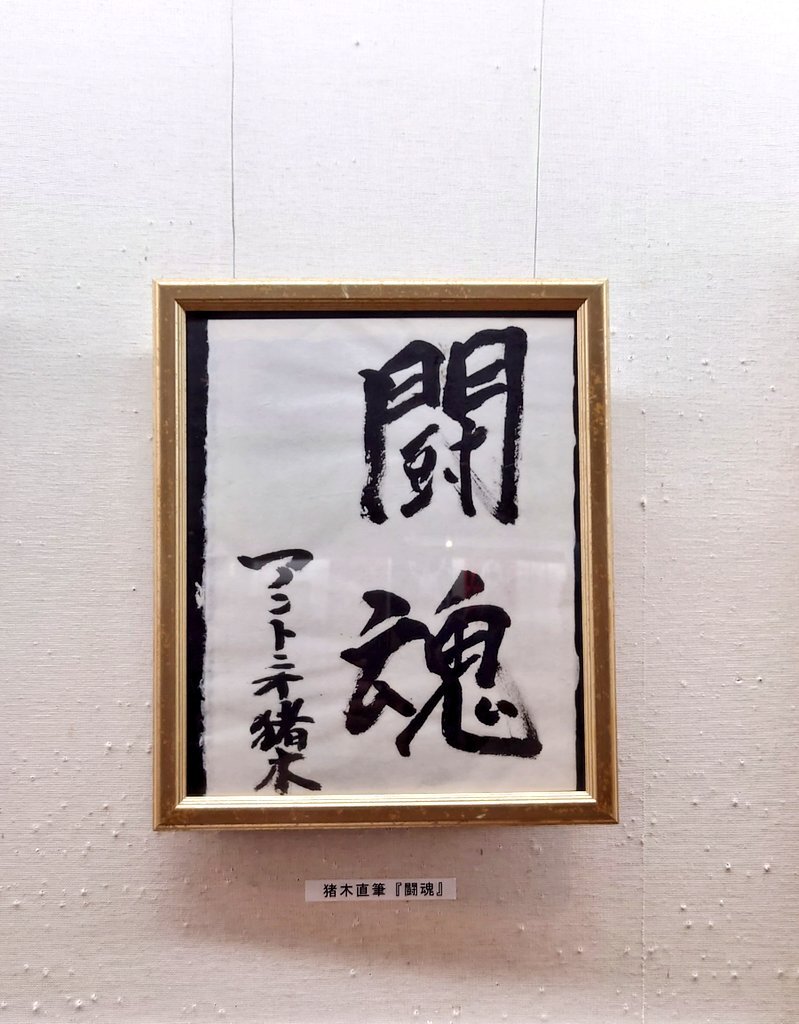 闘魂
アントニオ猪木
猪木直筆『闘魂』